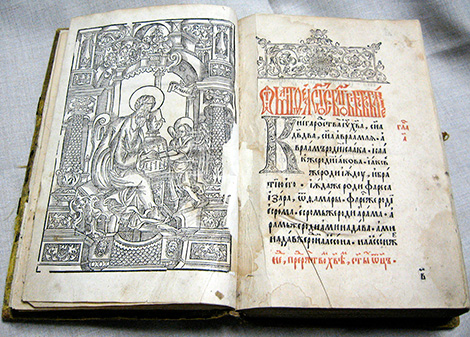 Книга роства і҃с х҃ва, сн҃а
дв҃два, сн҃а авраамлѧ.
авраамъ роди исаака. исаа
къже роди иакова. іаковъ
же роди июдꙋ, и бра
тїю его. іюдаже роди фареса
и зара, ѿ ѳамары. фаресже роди
есрома. есромъже роди арама. а
рамъже роди аминадава. ами
надавже роди наасона. наасонже
ст҃ыⷯ ѿц҃ъ.
гла
а